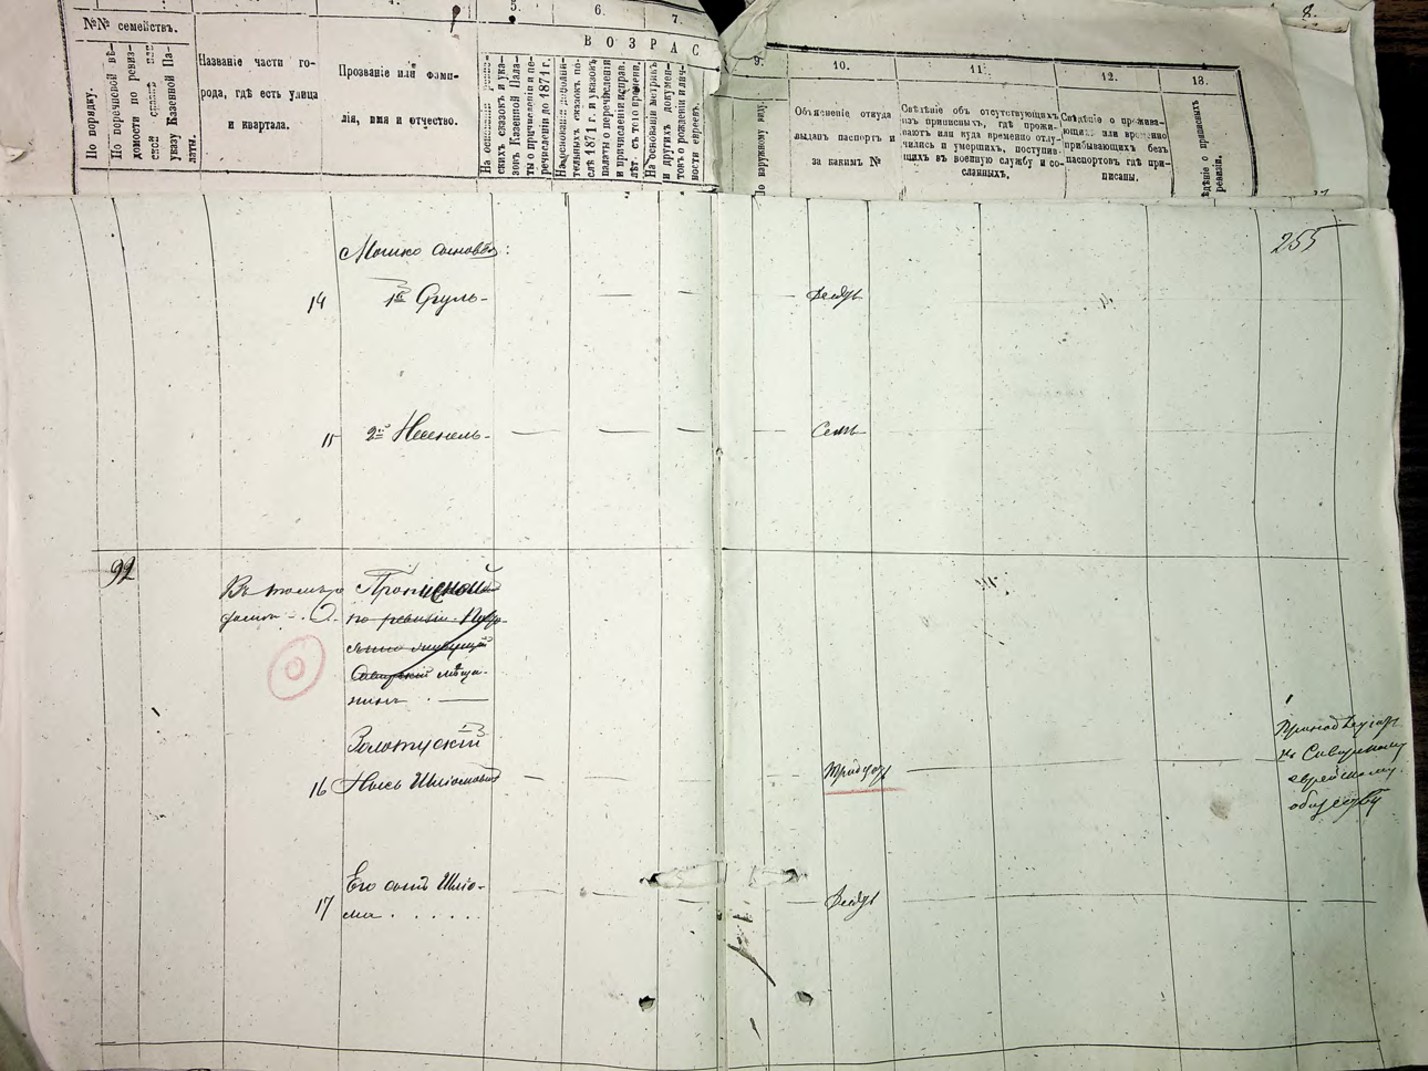 5.
6.
7.
8.
№№ семействъ.
По порядку.
По перечневой вѣ-
домости по ревиз-
ской сказкѣ или
указу Казенной Па-
латы.
Названіе части го-
рода, гдѣ есть улица
и квартала.
Прозваніе или фами-
лія, имя и отчество.
ВОЗРАС
На основаніи ревиз-
скихъ сказокъ и ука-
зовъ Казенной Пала-
ты о причисленіи и пе-
речисленіи до 1871 г.
На основаніи дополни-
тельныхъ сказокъ по-
слѣ 1871 г. и указовъ
палаты о перечисленіи
и причисленіи исправ.
лѣт. съ того времени.
На основаніи метрикъ
и другихъ докумен-
товъ о рожденіи и лич-
ности евреевъ.
9.
10.
11.
12.
13.
По наружному виду.
Объясненіе откуда
выданъ паспортъ и
за какимъ №
Свѣдѣніе объ отсутствующихъ
изъ приписныхъ, гдѣ прожи-
ваютъ или куда временно отлу-
чились и умершихъ, поступив-
щихъ въ военную службу и со-
сланныхъ.
Свѣдѣніе о прожива-
ющихъ или временно
прибывающихъ безъ
паспортовъ гдѣ при-
писаны.
ѣдѣніе о приписныхъ
ревизіи.
255
Мошко сыновья:
14 1й Сруль-
15 2й
Семь
92
по ревизіи
мѣща-
нинъ
Золотускій
16 Шліомовъ
Тридцать
Принадлежитъ
къ Савранскому
еврейскому
обществу
Его сынъ Шліо-
17 ма . . . . . .